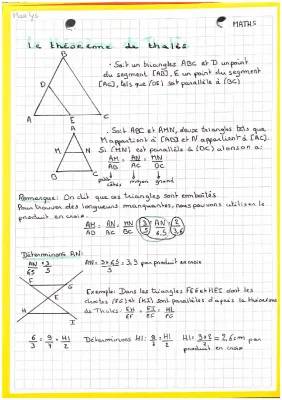 Maëlys
MATHS
Le théorème de Thalès
B
D
A
E
C
• Soit un triangles ABC et D un point
du segment [AB], E un point du segment
[AC], tels que (DE) est parallèle à (BC)
B
M
N
A
C
• Soit ABC et AMN, deux triangles tels que
M appartient à [AB] et N appartient à [AC].
Si (MN) est parallèle à (BC) alors on a:
AM/AB = AN/AC = MN/BC
petit moyen grand
côtés
Remarque: On dit que ces triangles sont emboîtés
Pour trouver des longueurs manquantes, nous pouvons utiliser le
produit en croix.
AM/AB = AN/AC = MN/BC
3/5 = AN/6,5 = 2/3,6
Déterminons AN:
AN/6,5 = 3/5
AN = 3×6,5/5 = 3,9 par produit en croix
F
G
E
H
I
Exemple: Dans les triangles FEG et HEI dont les
droites (FG) et (HI) sont parallèles d'après le théorème
de Thalès:
Déterminons HI:
par
produit en croix